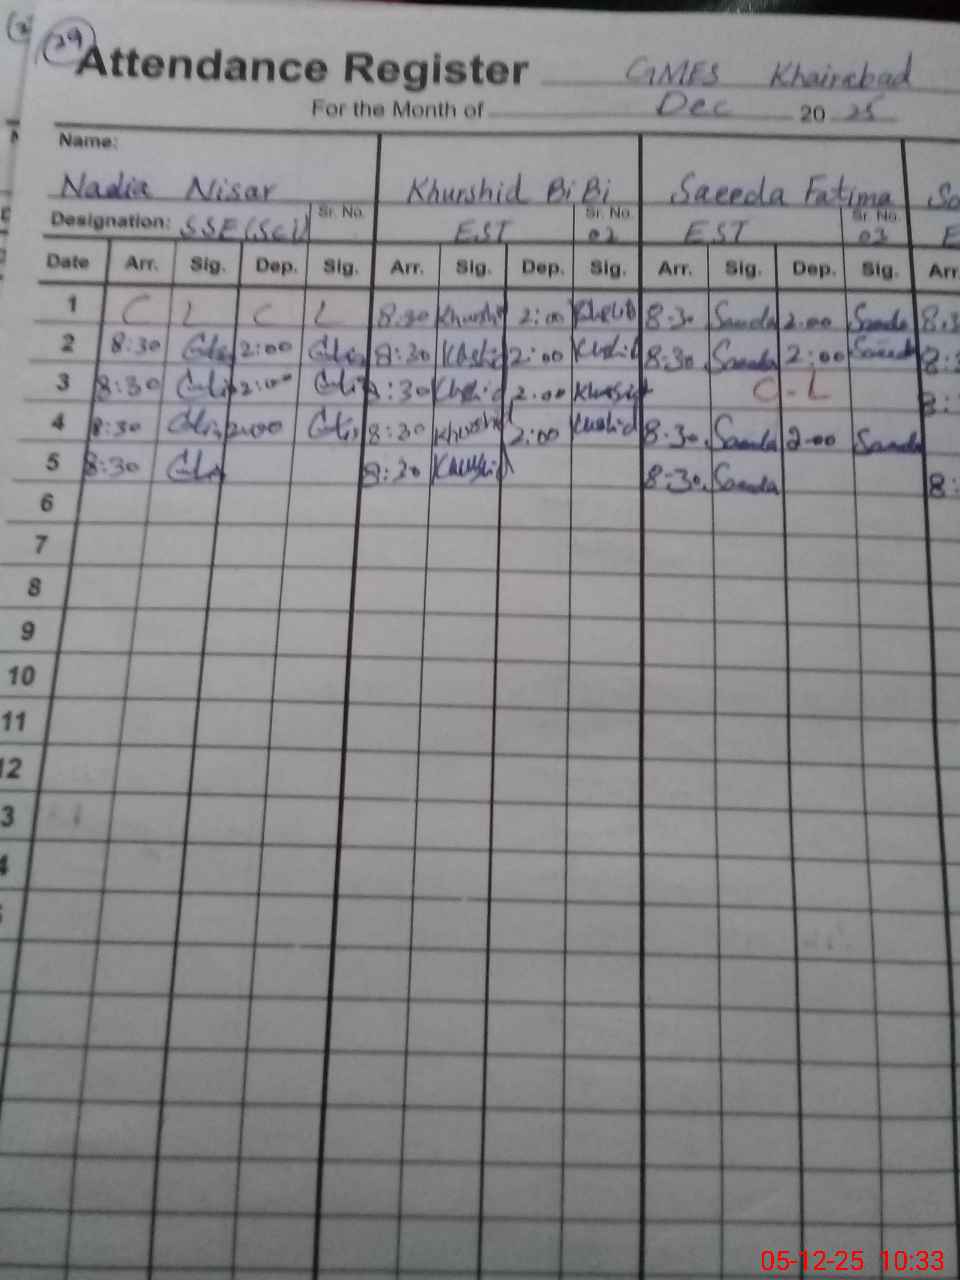 29
Attendance Register GMES Khairabad
For the Month of Dec 20 25
Name:
Nadia Nisar Khurshid BiBi Saeeda Fatima
Designation: SSE(Sci) Sr. No. EST Sr. No. 02 EST Sr. No. 03
Date Arr. Sig. Dep. Sig. Arr. Sig. Dep. Sig. Arr. Sig. Dep. Sig. Arr.
1 C L C L 8:30 Khurshid 2:00 8:30 Saeeda 2:00 Saeeda
2 8:30 2:00 8:30 Khurshid 2:00 Khurshid 8:30 Saeeda 2:00 Saeeda
3 8:30 2:00 8:30 Khurshid 2:00 Khurshid C-L
4 8:30 2:00 8:30 Khurshid 2:00 Khurshid 8:30 Saeeda 2:00 Saeeda
5 8:30 8:30 Khurshid 8:30 Saeeda 8:
6
7
8
9
10
11
12
3
4
05-12-25 10:33